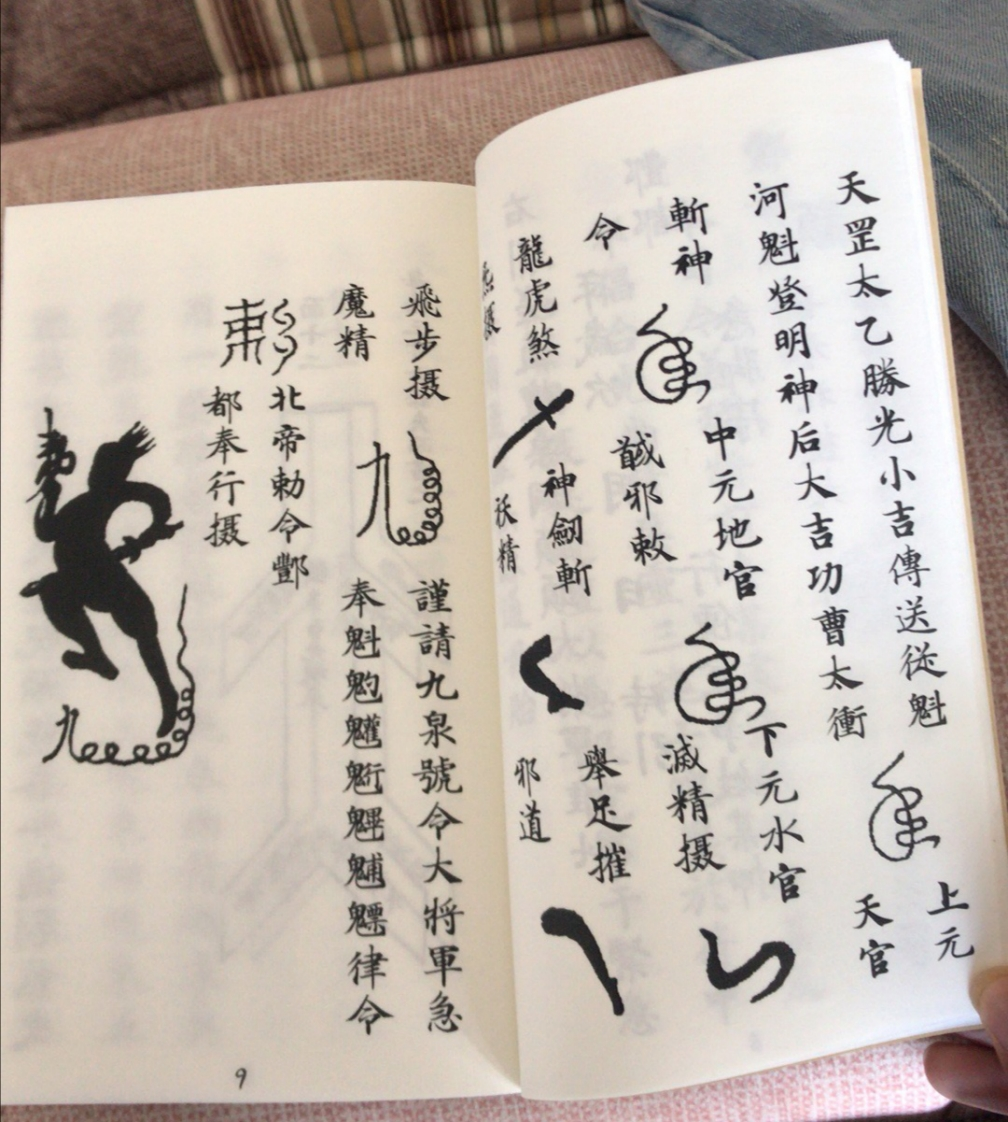 天罡太乙勝光小吉傳送從魁
上元
天官
河魁登明神后大吉功曹太衝
中元地官
下元水官
斬神
馘邪敕
滅精摄
令
神劒斬
舉足摧
龍虎煞
祅精
邪道
飛步摄
九
謹請九泉號令大將軍急
魔精
奉魁魓魒律令
北帝勅令酆
都奉行摄
九
9